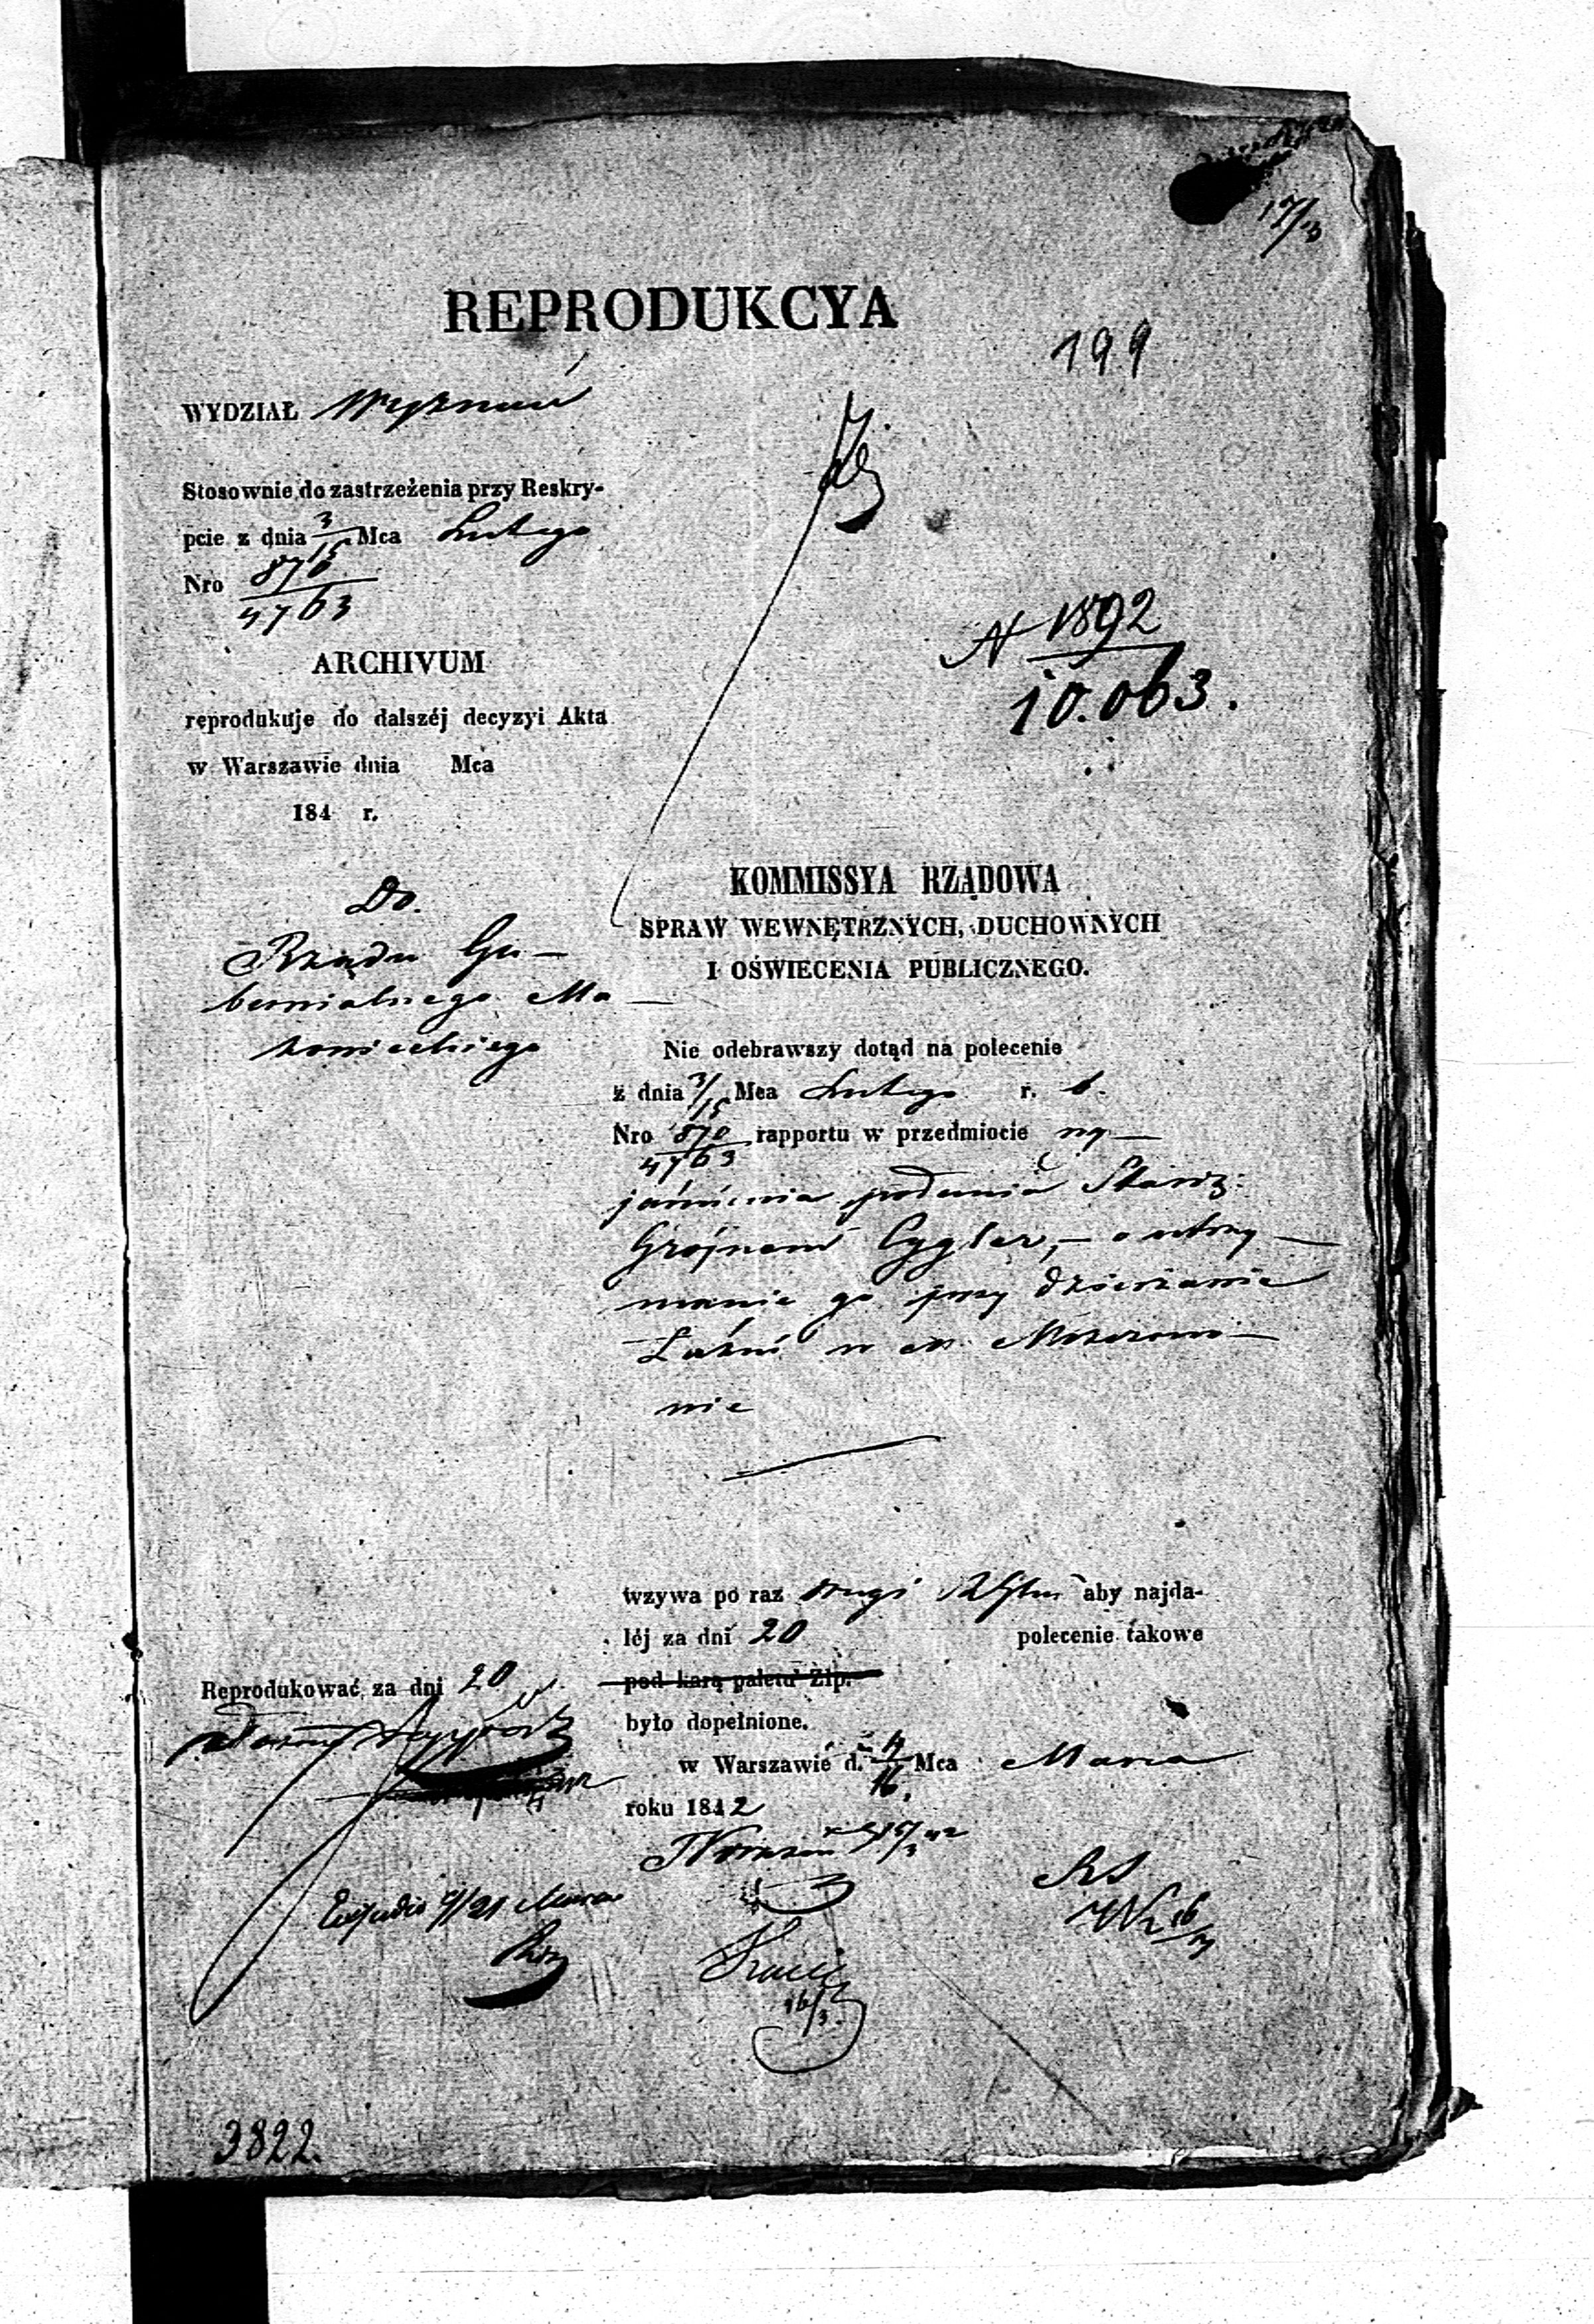 17/3
REPRODUKCYA
199
WYDZIAŁ Wyznań
Stosownie do zastrzeżenia przy Reskry-
pcie z dnia 3/15 Mca Lutego
Nro 870/4763
N 1892/10.063.
ARCHIVUM
reprodukuje do dalszéj decyzyi Akta
w Warszawie dnia Mca
184 r.
Do.
Rządu Gu-
bernialnego Ma-
zowieckiego
KOMMISSYA RZĄDOWA
SPRAW WEWNĘTRZNYCH, DUCHOWNYCH
I OŚWIECENIA PUBLICZNEGO.
Nie odebrawszy dotąd na polecenie
z dnia 3/15 Mca Lutego r. b.
Nro 870/4763 rapportu w przedmiocie wy-
jaśnienia podania Starz:
Cygler, - o utrzy-
manie go przy dzierżawie
Łaźni w m.
nie
wzywa po raz drugi aby najda-
léj za dni 20 polecenie takowe
pod karą paletu Złp.
było dopełnione.
w Warszawie d. 4/16 Mca Marca
roku 1842
Reprodukować za dni 20
15/3 42
9/21 Marca
16/3
3822.